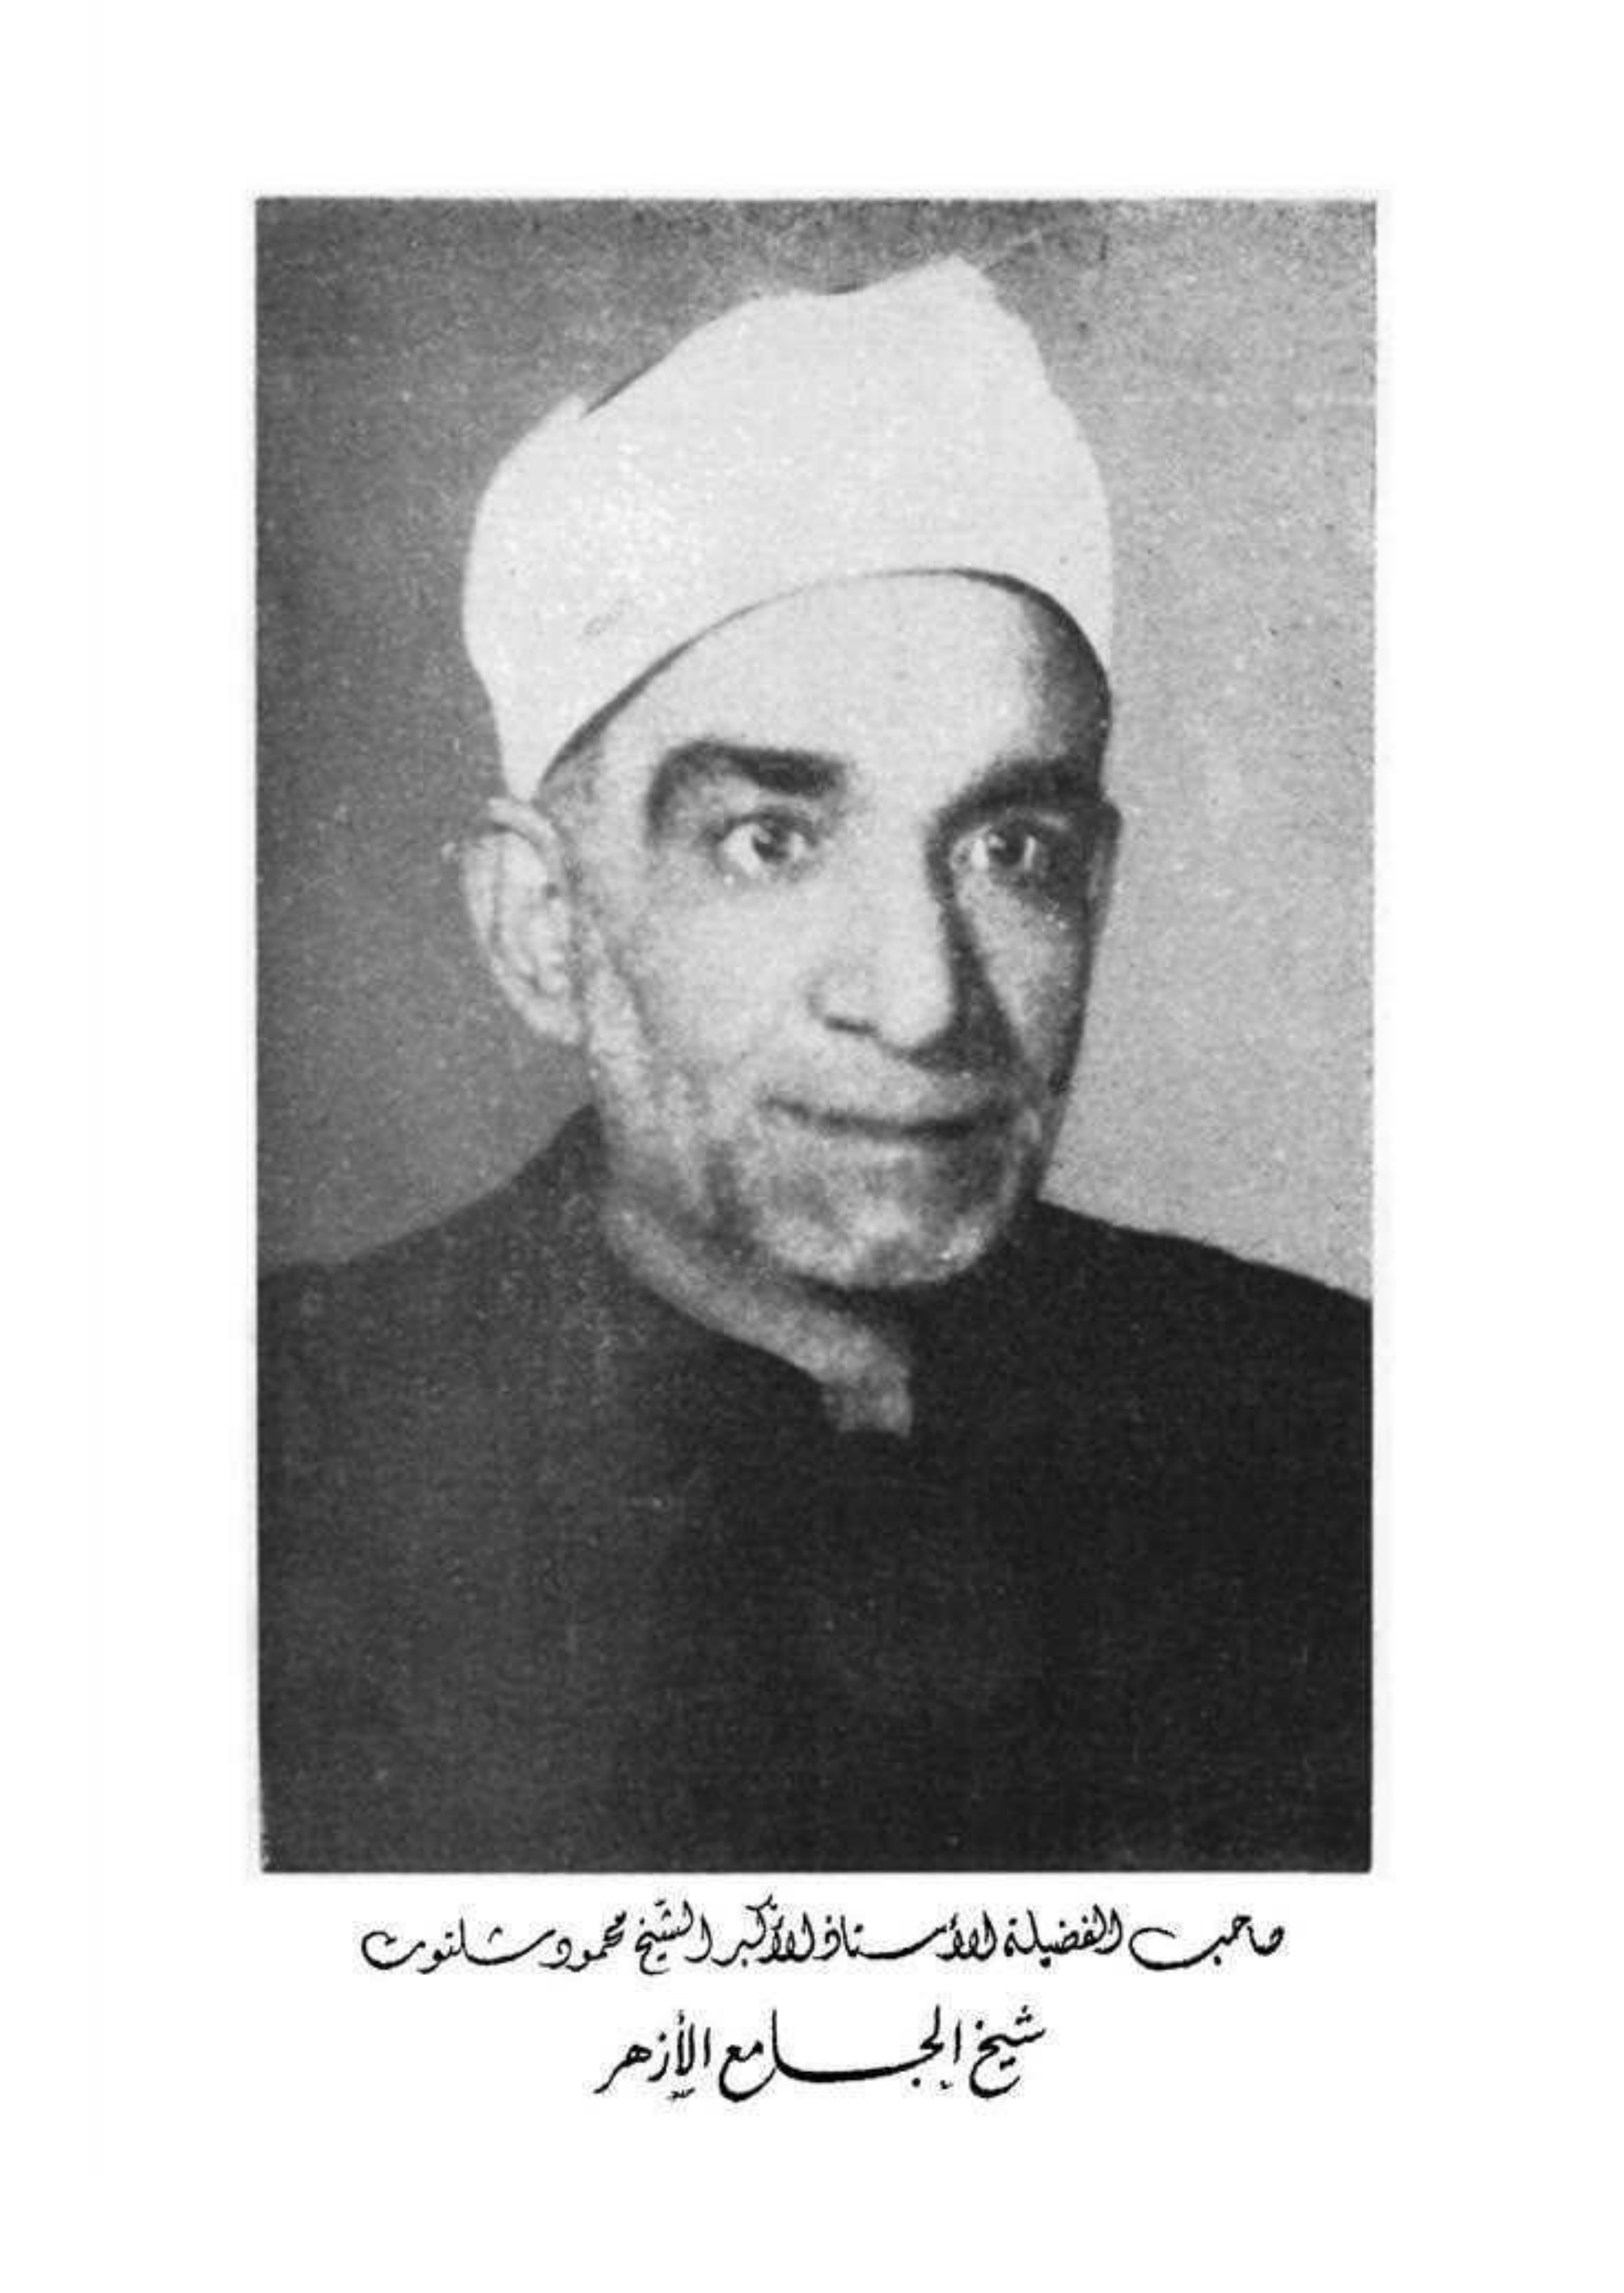 صاحب الفضيلة الأستاذ الأكبر الشيخ محمود شلتوت
شيخ الجامع الأزهر